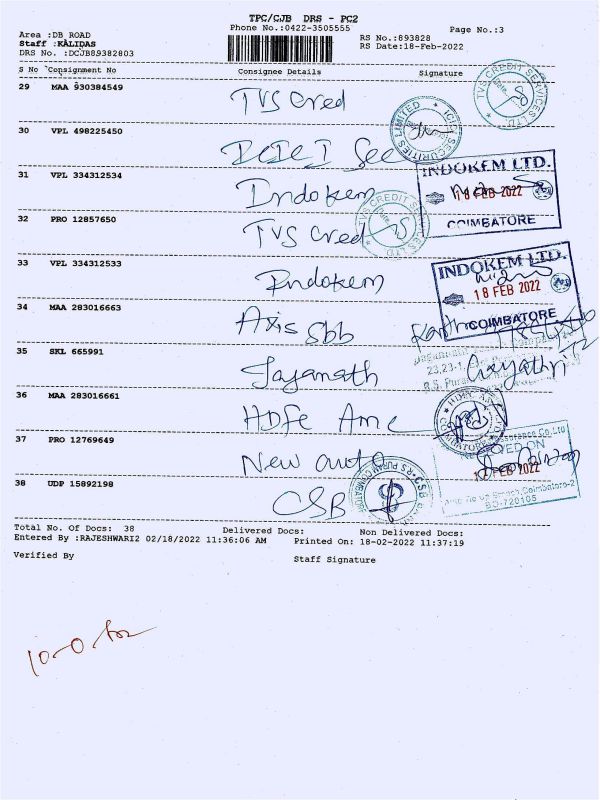 TPC/CJB DRS - PC2
Phone No.:0422-3505555
Page No.:3
Area :DB ROAD
RS No.:893828
Staff :KALIDAS
RS Date:18-Feb-2022
DRS No. :DCJB89382803
S No Consignment No Consignee Details Signature
29 MAA 930384549 TVS Cred
TVS CREDIT SERVICES
30 VPL 498225450 ICICI Sec
ICICI SECURITIES LIMITED
31 VPL 334312534 Indokem
INDOKEM LTD.
18 FEB 2022
COIMBATORE
32 PRO 12857650 TVS Cred
TVS CREDIT SERVICES LTD
33 VPL 334312533 Indokem
INDOKEM LTD.
18 FEB 2022
COIMBATORE
34 MAA 283016663 Axis Sbb
35 SKL 665991 Jayanath Gayathri
23,23-1,
R.S. Pura
36 MAA 283016661 HDFC Amc
37 PRO 12769649 New
Assurance Co.Ltd
FEB 2022
Coimbatore-2
BO-720105
38 UDP 15892198 CSB
CSB R S PURAM COIMBATORE
Total No. Of Docs: 38 Delivered Docs: Non Delivered Docs:
Entered By :RAJESHWARI2 02/18/2022 11:36:06 AM Printed On: 18-02-2022 11:37:19
Verified By Staff Signature